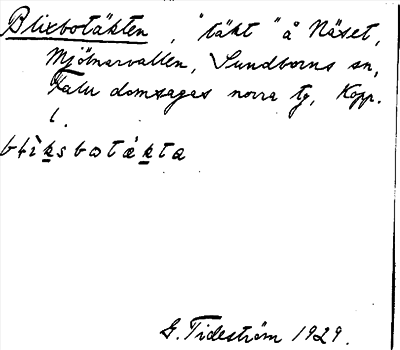 Blixbotäkten, "täkt" å Näset,
Mjölnarvallen, Sundborns sn,
Falu domsagas norra tg, Kopp.
l.
bliksbotäkta
G. Tideström 1929.